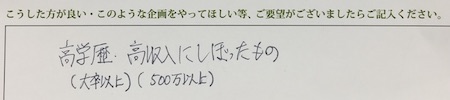 こうした方が良い・このような企画をやってほしい等、ご要望がございましたらご記入ください。
高学歴・高収入にしぼったもの
(大卒以上)(500万以上)